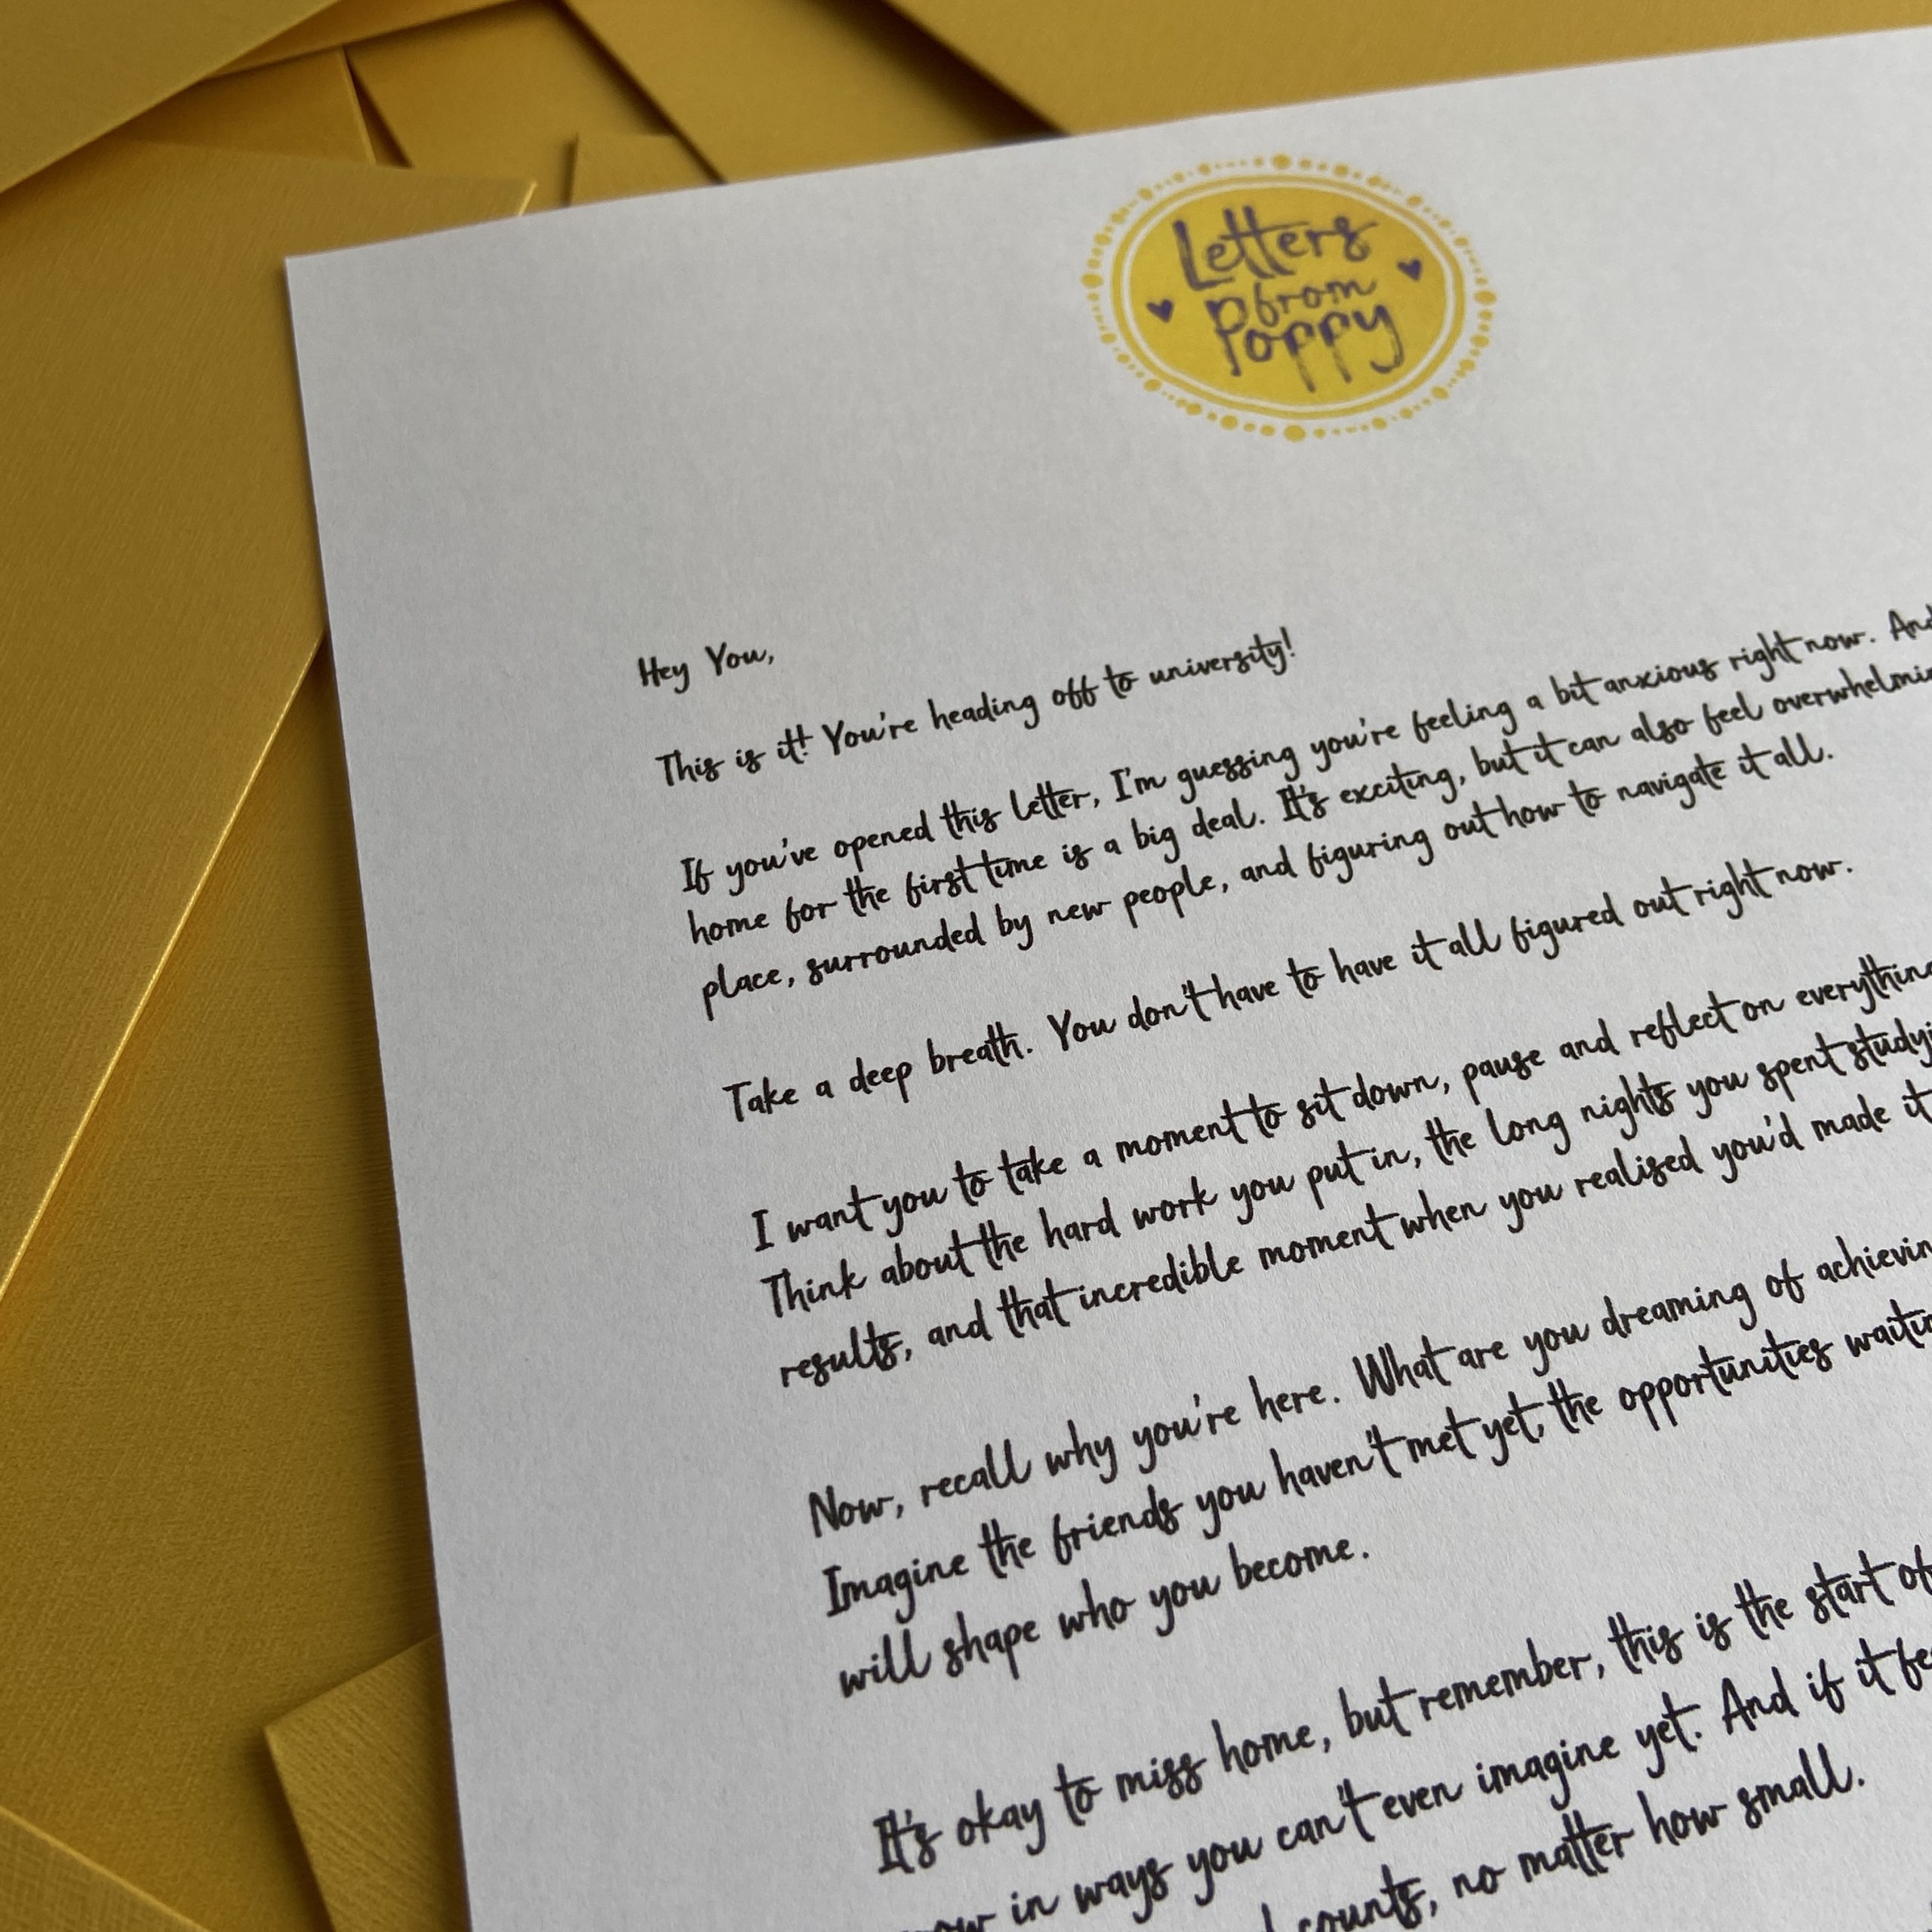 Letters
from
Poppy
Hey You,
This is it! You're heading off to university!
If you've opened this letter, I'm guessing you're feeling a bit anxious right now. And
home for the first time is a big deal. It's exciting, but it can also feel
place, surrounded by new people, and figuring out how to navigate it all.
Take a deep breath. You don't have to have it all figured out right now.
I want you to take a moment to sit down, pause and reflect on everything
Think about the hard work you put in, the long nights you spent
results, and that incredible moment when you realised you'd made it
Now, recall why you're here. What are you dreaming of
Imagine the friends you haven't met yet, the opportunities
will shape who you become.
It's okay to miss home, but remember, this is the start of
in ways you can't even imagine yet. And if it
counts, no matter how small.